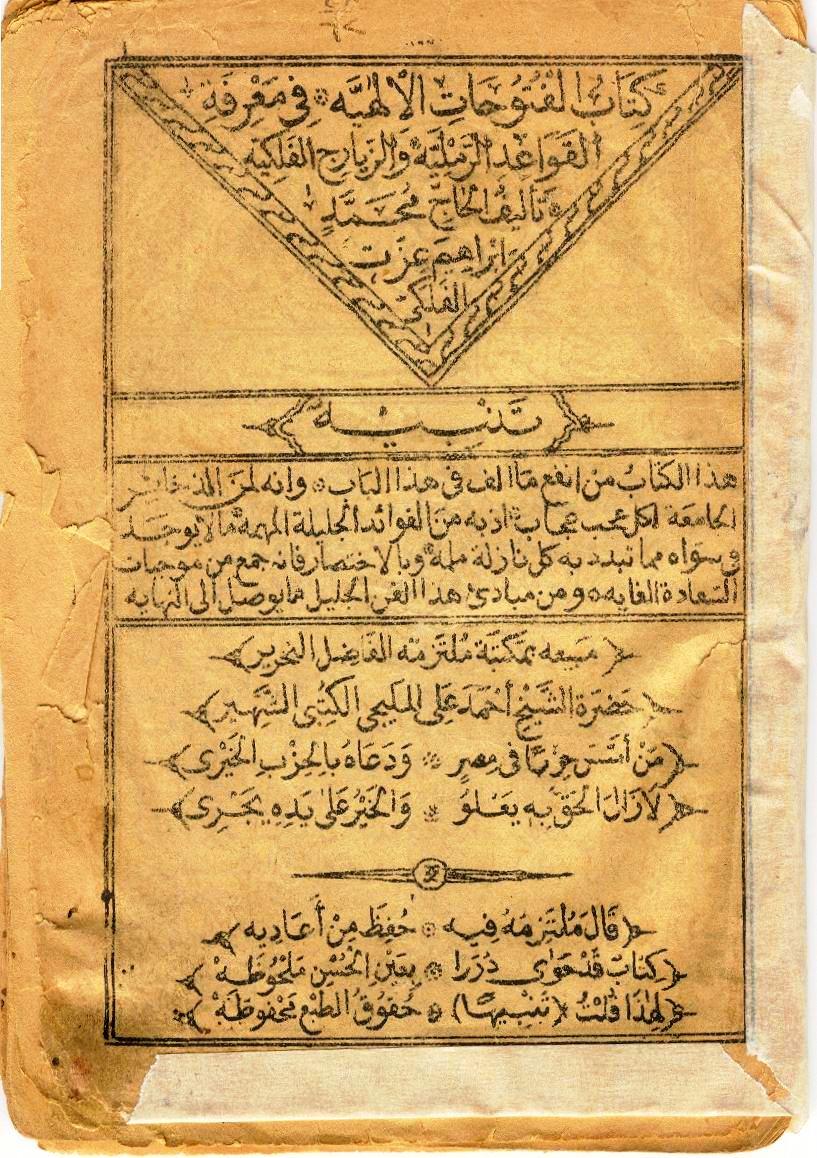 كِتَابُ الفُتُوحَاتِ الإلهيَّه * فِي مَعْرِفَةِ
القَوَاعِدِ الرَّمْلِيَّة وَالزَّيَارِج الفَلَكِيَّة
* تَأليف الحَاجّ مُحَمَّد
ابْرَاهِيم عِزَّت
الفَلَكِى
تَنْبِيه
هذا الكتابُ من انفع ما الف فى هذا الباب * وانه لمن الذخائر
الجامعة لكل عجب عجاب * اذ به من الفوائد الجليلة المهمه مالا يوجد
فى سواه مما تبدد به كل نازلة ملمه * وبالاختصار فانه جمع من موجبات
السعادة الغايه * ومن مبادئ هذا الفن الجليل ما يوصل الى النهايه
﴿ مَبيعه بمَكتبَة مُلتَزمه الفَاضِل النحرير ﴾
﴿ حَضرَة الشَّيْخ أحْمَد عَلِى المليجى الكتبى الشَّهِير ﴾
﴿ مَنْ أَسَّسَ حِزْبًا فى مِصرٍ * وَدَعَاهُ بِالحِزْبِ الخَيْرِى ﴾
﴿ لَازَالَ الحَقّ بِهِ يَعْلُو * وَالخَيْرُ عَلى يَدِهِ يَجْرِى ﴾
﴿ قَالَ مُلتَزِمُهُ فِيهِ * حُفِظَ مِنْ أَعَادِيه ﴾
﴿ كِتَابٌ قَدْ حَوَى دُرَرا * بِعَيْنِ الحُسْنِ مَلحُوظَهْ ﴾
﴿ لِهٰذَا قُلتُ ﴿ تَنْبِيهًا ﴾ * حُقوقُ الطَّبْع مَحْفُوظَهْ ﴾